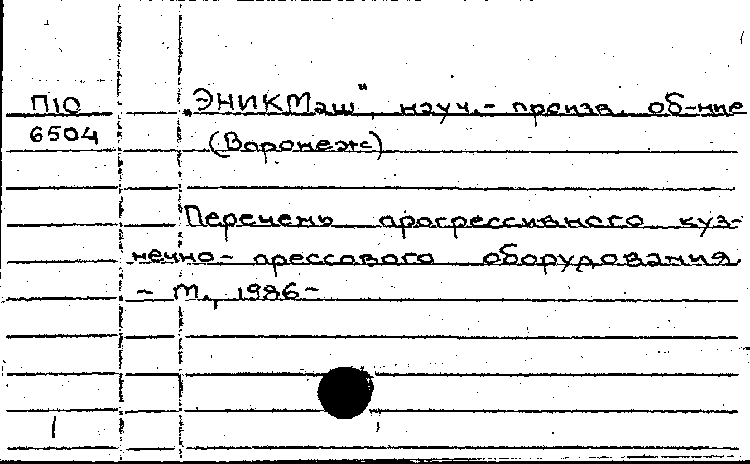 П10 „ЭНИКМаш", науч.- произв. об-ние
6504 (Воронеж)
Перечень прогрессивного куз-
нечно-прессового оборудования
- М., 1986-